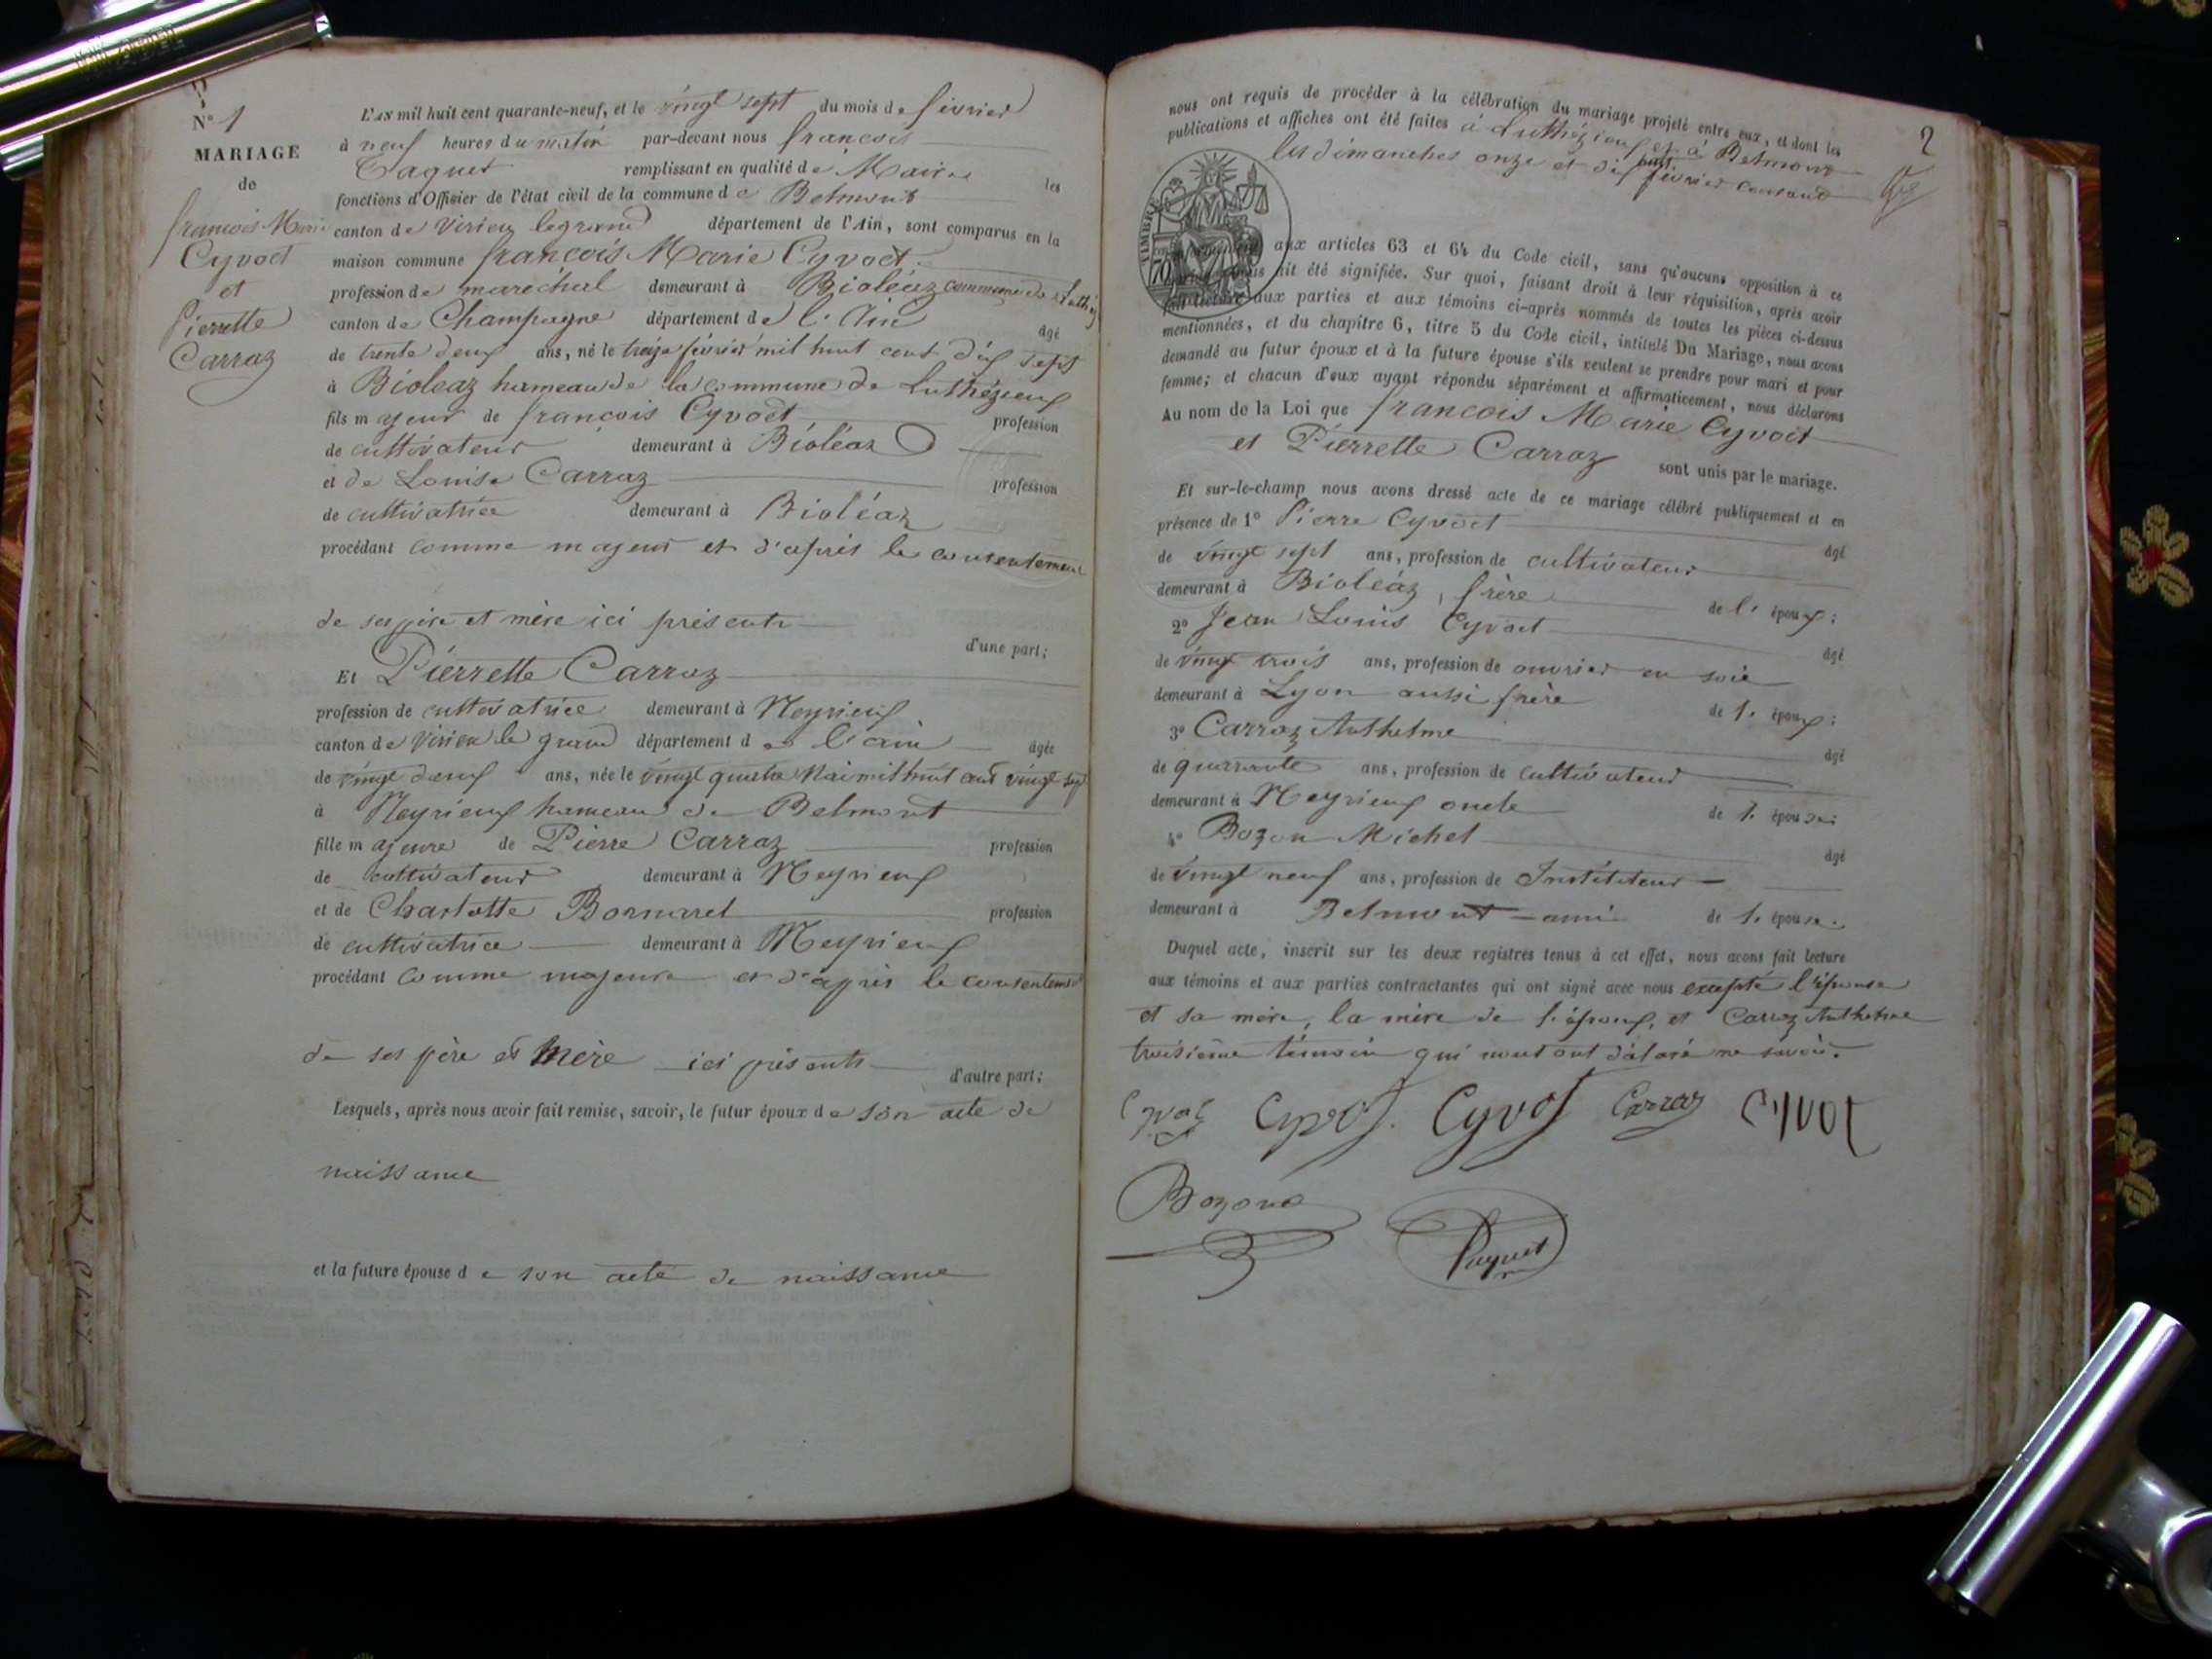 N° 1
MARIAGE
de
françois Marie
Cyvoct
et
Pierrette
Carraz
L'AN mil huit cent quarante-neuf, et le vingt sept du mois de février
à neuf heures du matin par-devant nous françois
remplissant en qualité de Maire les
fonctions d'Officier de l'état civil de la commune de Belmont
canton de Virieu legrand département de l'Ain, sont comparus en la
maison commune françois Marie Cyvoct
profession de maréchal demeurant à Bioléaz commune de
canton de Champagne département de l'Ain âgé
de trente deux ans, né le treize février mil huit cent dix sept
à Bioleaz hameau de la commune de Luthézieux
fils majeur de françois Cyvoct profession
de cultivateur demeurant à Bioléaz
et de Louise Carraz profession
de cultivatrice demeurant à Bioléaz
procédant comme majeur et d'après le consentement
de ses père et mère ici présents
d'une part;
Et Pierrette Carraz
profession de cultivatrice demeurant à Meyrieux
canton de Virieu le grand département de l'ain âgée
de vingt deux ans, née le vingt quatre Mai mil huit cent vingt six
à Meyrieux hameau de Belmont
fille majeure de Pierre Carraz profession
de cultivateur demeurant à Meyrieux
et de Charlotte Bornarel profession
de cultivatrice demeurant à Meyrieux
procédant comme majeure et d'après le consentement
de ses père et Mère ici présents
d'autre part;
Lesquels, après nous avoir fait remise, savoir, le futur époux de son acte de
naissance
et la future épouse de son acte de naissance
2
nous ont requis de procéder à la célébration du mariage projeté entre eux, et dont les
publications et affiches ont été faites à Luthézieux et à Belmont
les dimanches onze et dix huit février courant
TIMBRE
70
aux articles 63 et 64 du Code civil, sans qu'aucune opposition à ce
ait été signifiée. Sur quoi, faisant droit à leur réquisition, après avoir
fait lecture aux parties et aux témoins ci-après nommés de toutes les pièces ci-dessus
mentionnées, et du chapitre 6, titre 5 du Code civil, intitulé Du Mariage, nous avons
demandé au futur époux et à la future épouse s'ils veulent se prendre pour mari et pour
femme; et chacun d'eux ayant répondu séparément et affirmativement, nous déclarons
Au nom de la Loi que francois Marie Cyvoct
et Pierrette Carraz sont unis par le mariage.
Et sur-le-champ nous avons dressé acte de ce mariage célébré publiquement et en
présence de 1° Pierre Cyvoct âgé
de vingt sept ans, profession de cultivateur
demeurant à Bioléaz, frère de l'époux;
2° Jean Louis Cyvoct âgé
de vingt trois ans, profession de ouvrier en soie
demeurant à Lyon aussi frère de l'époux;
3° Carraz Anthelme âgé
de quarante ans, profession de cultivateur
demeurant à Meyrieux oncle de l'épouse;
4° Bozon Michel âgé
de vingt neuf ans, profession de Instituteur
demeurant à Belmont ami de l'épouse.
Duquel acte, inscrit sur les deux registres tenus à cet effet, nous avons fait lecture
aux témoins et aux parties contractantes qui ont signé avec nous excepté l'épouse
et sa mère, la mère de l'époux, et Carraz Anthelme
troisième témoin qui nout ont déclaré ne savoir.
Cyvoct Cyvoct. Cyvoct Carraz Cyvoct
Bozon